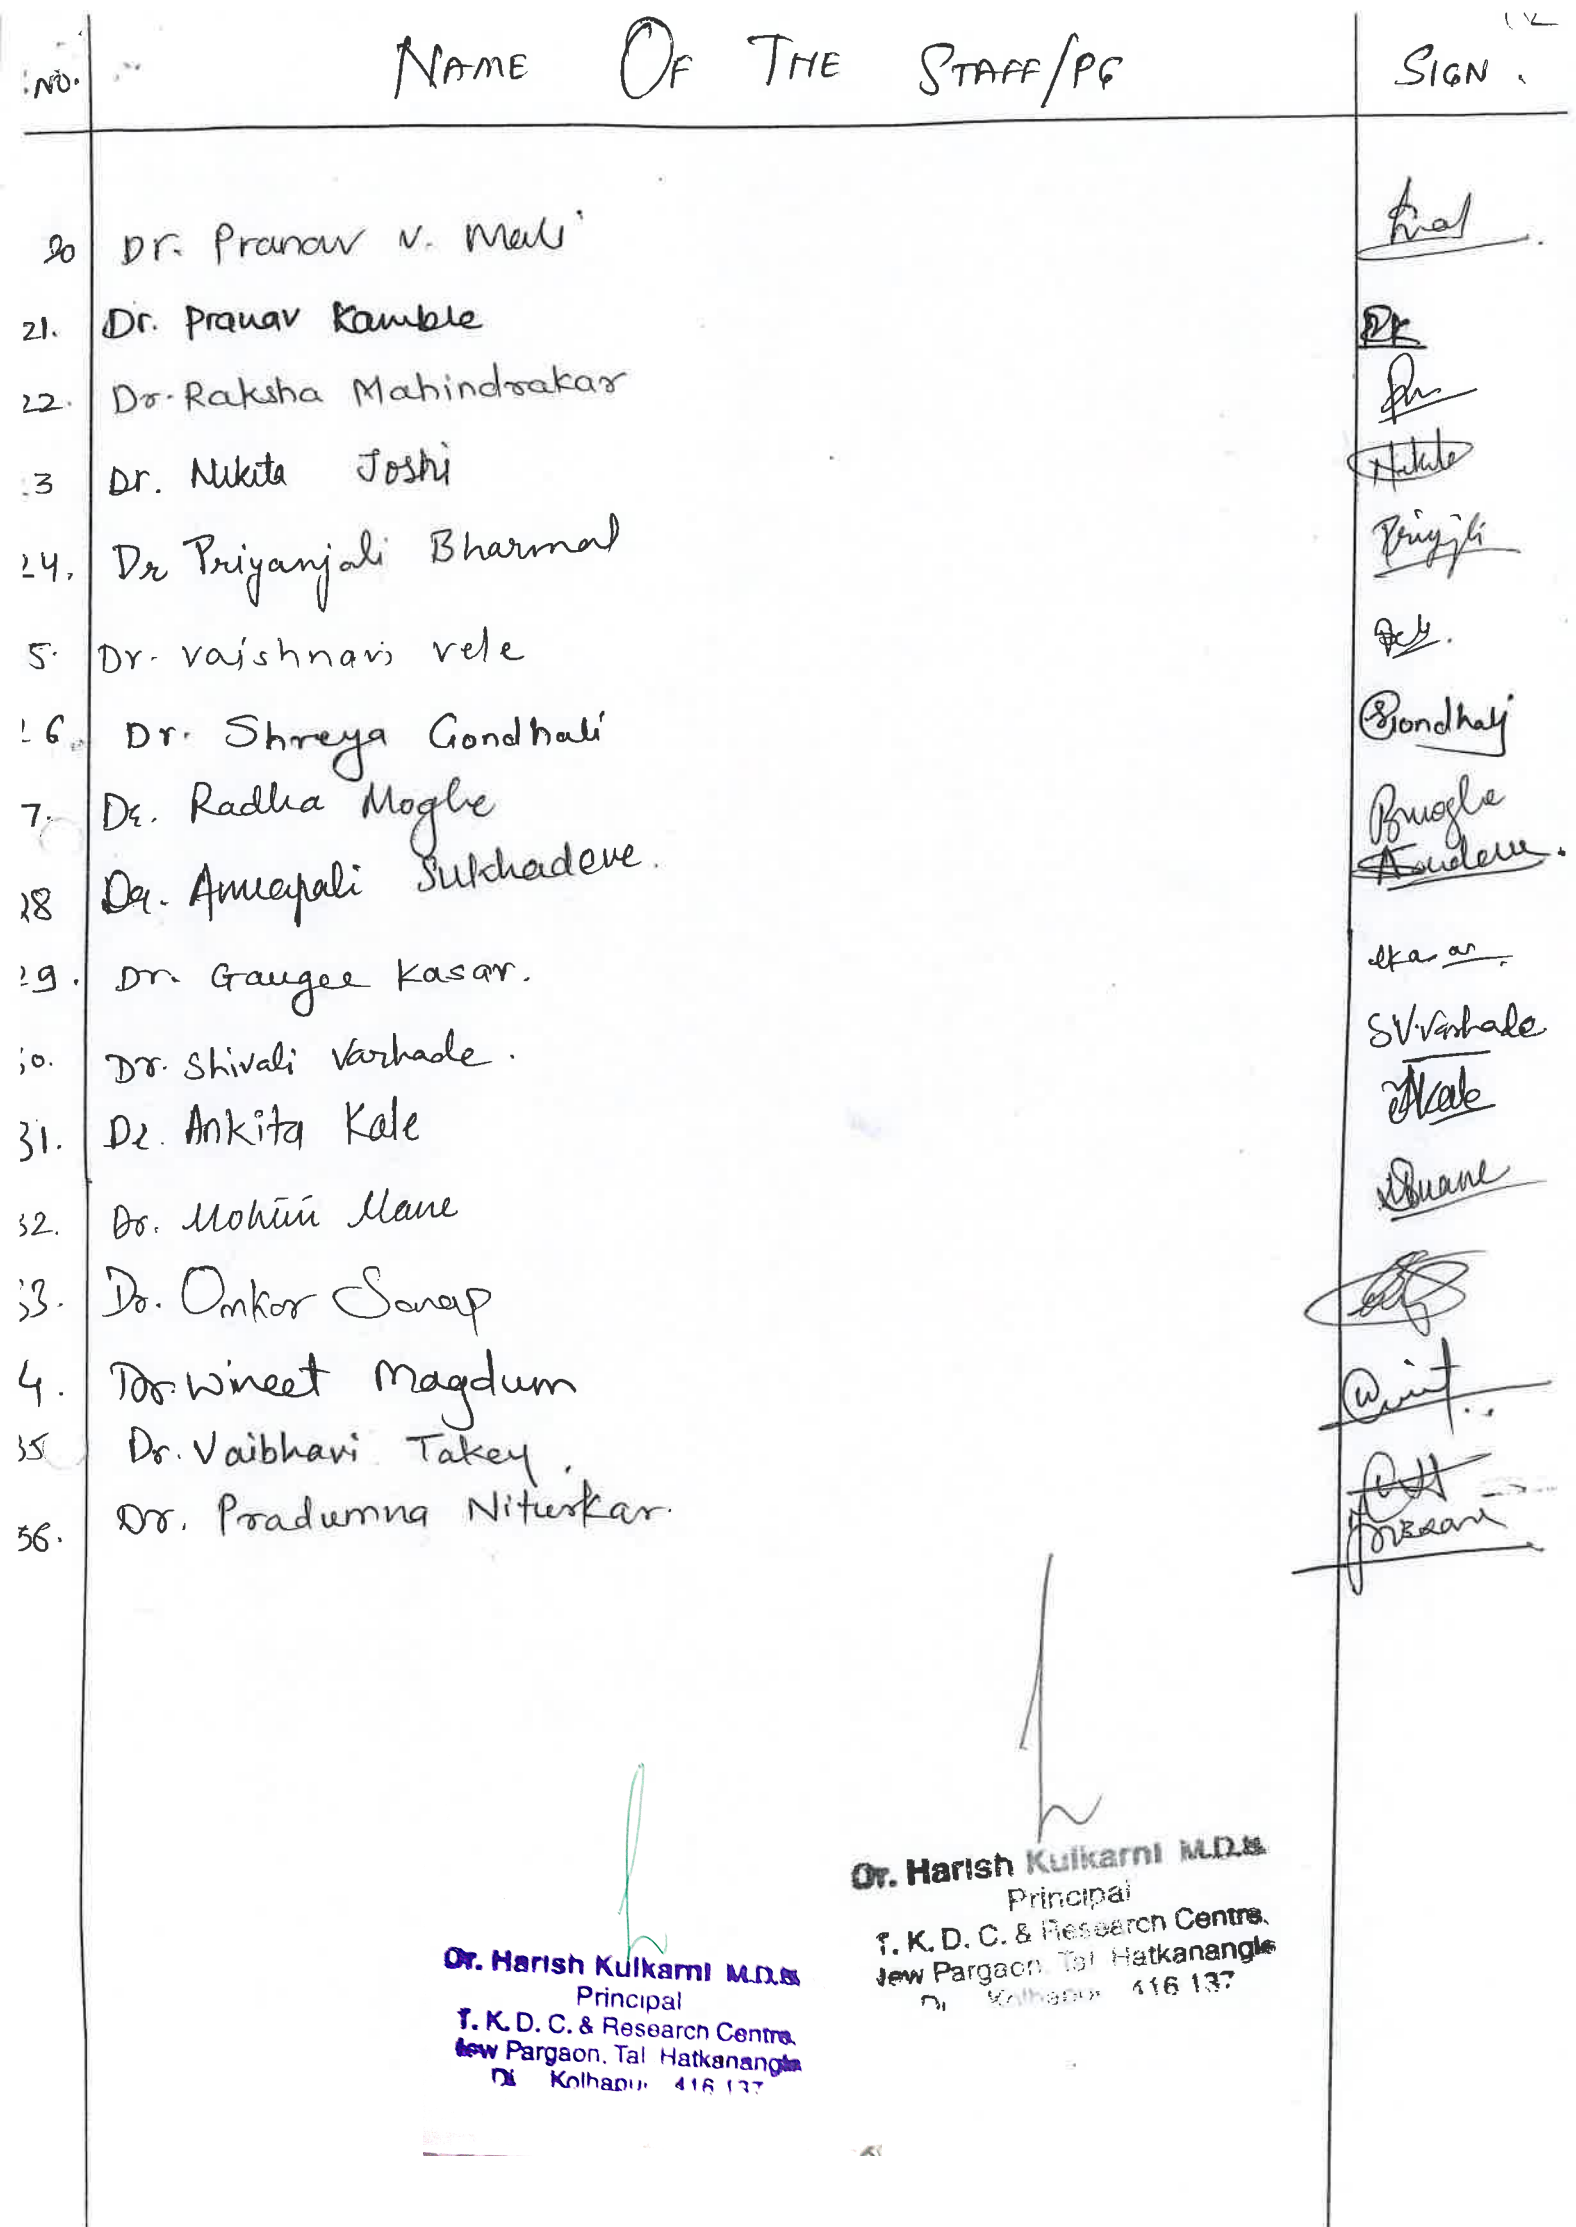 NO. NAME OF THE STAFF/PG SIGN.
20 Dr. Pranav N. Mali
21. Dr. Pranav Kamble PK
22. Dr. Raksha Mahindrakar
3 Dr. Nikita Joshi Nikita
24. Dr Priyanjali Bharmal
5. Dr. Vaishnavi Vele
26. Dr. Shreya Gondhali Gondhali
7. Dr. Radha Moghe Rmoghe
28 Dr. Amrapali Sukhadeve.
29. Dr. Gaugee Kasar.
30. Dr. Shivali Varhade. S.V.Varhade
31. Dr. Ankita Kale AKale
32. Dr. Mohini Mane
33. Dr. Omkar Sanap
4. Dr. Wineet Magdum
35 Dr. Vaibhavi Takey.
36. Dr. Pradumna Niturkar.
Dr. Harish Kulkarni M.D.S.
Principal
T. K. D. C. & Research Centre,
New Pargaon, Tal Hatkanangle
Di Kolhapur 416 137
Dr. Harish Kulkarni M.D.S.
Principal
T. K. D. C. & Research Centre,
New Pargaon. Tal Hatkanangle
Di Kolhapur 416 137